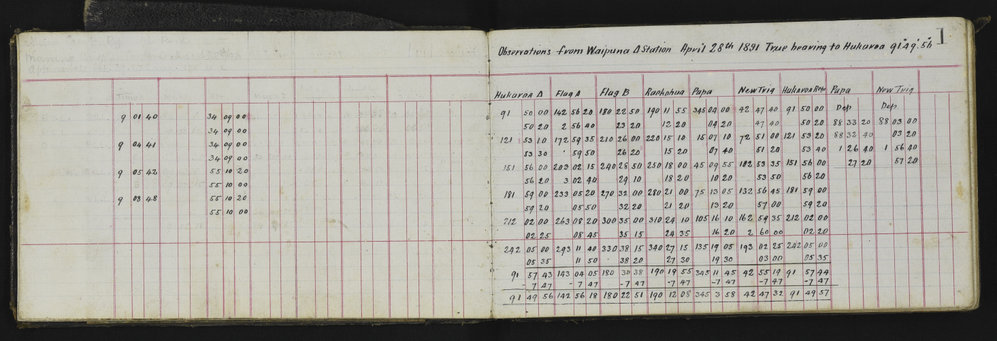 9 01 40 34 09 00
34 09 00
9 04 41 34 09 00
34 09 00
9 05 42 55 10 20
55 10 00
9 08 48 55 10 20
55 10 00
1
Observations from Waipuna Δ Station April 28th 1891 True bearing to Hukaroa 91° 49' 56
Hukaroa Δ Flag A Flag B Raekohua Papa New Trig Hukaroa Rep. Papa New Trig
91 50 00 142 56 20 180 22 50 190 11 55 345 04 00 42 47 40 91 50 00 Dep Dep
50 20 2 56 40 23 20 12 20 04 20 47 40 50 20 88 33 20 88 03 00
121 53 10 172 59 35 210 26 00 220 15 10 15 07 10 72 51 00 121 53 20 88 32 40 03 20
53 30 59 50 26 20 15 20 07 40 51 20 53 40 1 26 40 1 56 40
151 56 00 203 02 15 240 28 50 250 18 00 45 09 55 102 53 35 151 56 00 27 20 57 20
56 20 3 02 40 29 10 18 20 10 20 53 50 56 20
181 59 00 233 05 20 270 32 00 280 21 00 75 13 05 132 56 45 181 59 00
59 20 05 50 32 20 21 20 13 20 57 00 59 20
212 02 00 263 08 20 300 35 00 310 24 10 105 16 10 162 59 35 212 02 00
02 25 08 45 35 15 24 35 16 20 2 60 00 02 20
242 05 00 293 11 40 330 38 15 340 27 15 135 19 05 193 02 25 242 05 00
05 35 11 50 38 20 27 30 19 30 03 00 05 35
91 57 43 143 04 05 180 30 38 190 19 55 345 11 45 42 55 19 91 57 44
-7 47 -7 47 -7 47 -7 47 -7 47 -7 47 -7 47
91 49 56 142 56 18 180 22 51 190 12 08 345 3 58 42 47 32 91 49 57